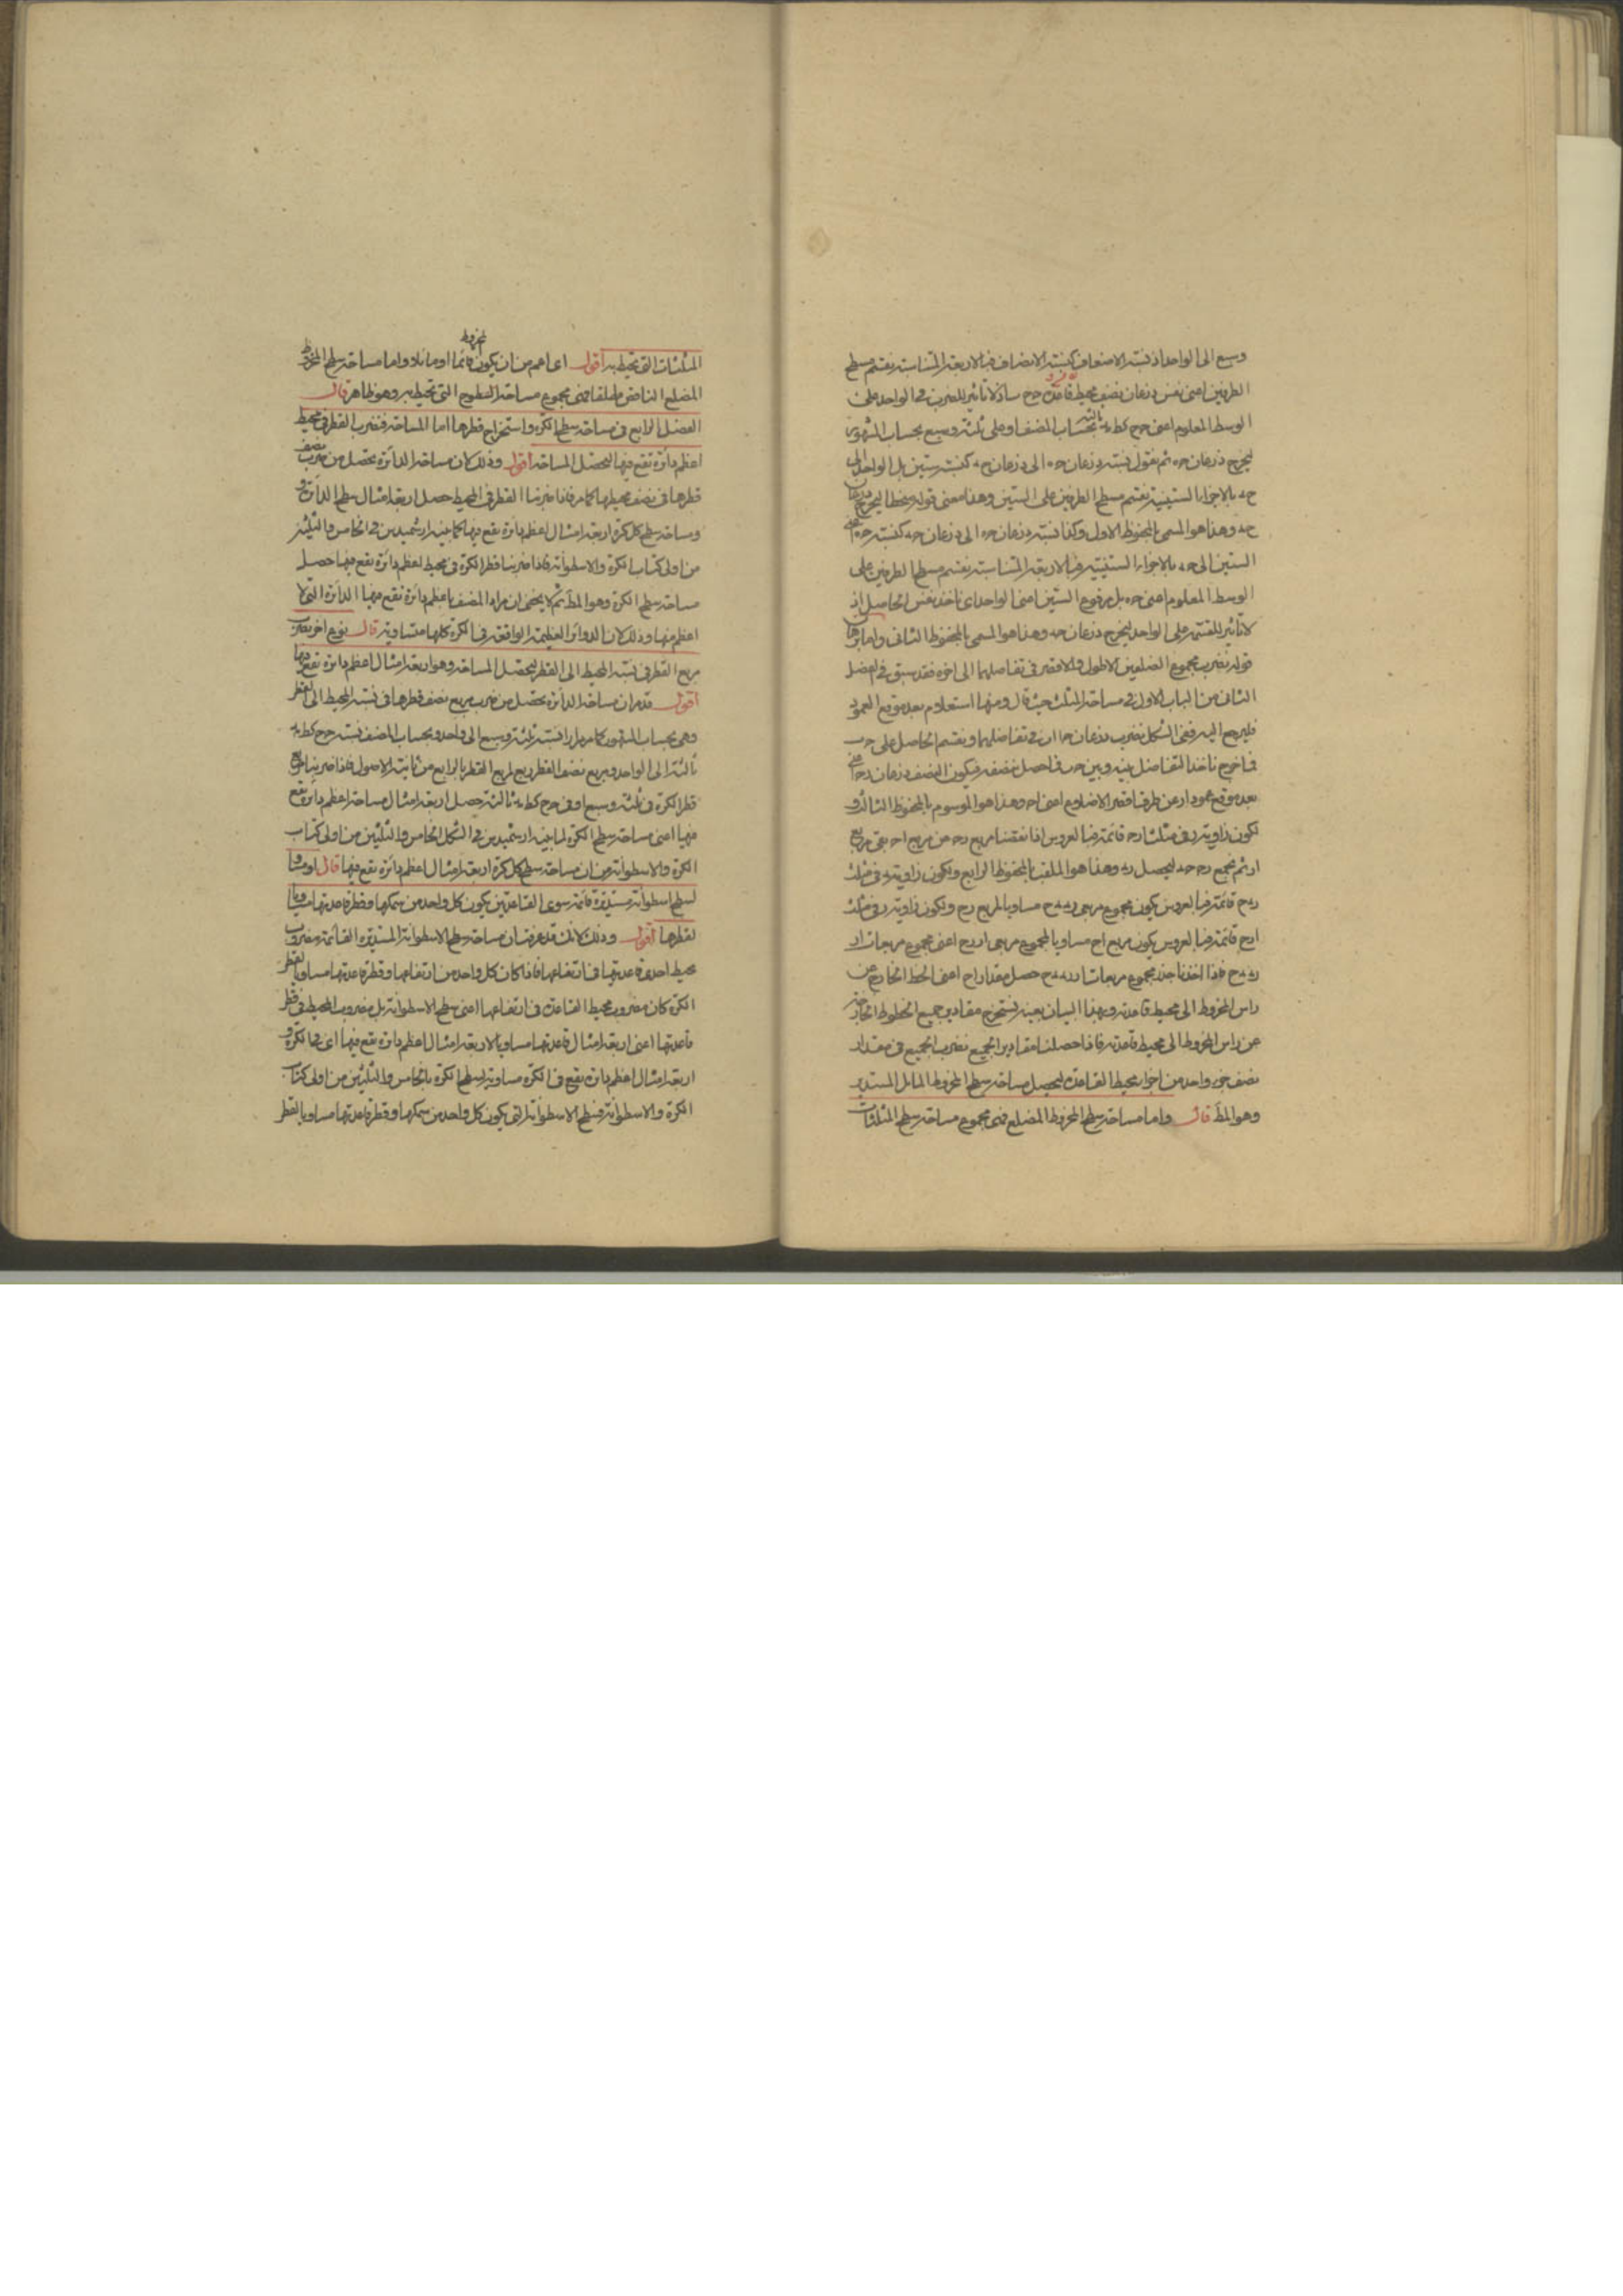 وسبع الى الواحد اذ نسبة الاضعاف كنسبة الانصاف فبالاربعة المتناسبة نقسم مسطح
الطرفين اعنى نفس ذرعان نصف محيط قاعدة اذ لا تاثير للضرب فى الواحد على
الوسط المعلوم اعنى بحساب المصنف او على ثلثة وسبع بحساب المشهور
ليخرج ذرعان ثم نقول نسبة ذرعان الى ذرعان كنسبة ستين بل الواحد الى
بالاجزاء الستينية نقسم مسطح الطرفين على الستين وهذا معنى قوله منحطا ليخرج ذرعان
وهذا هو المسمى بالمحفوظ الاول وكذا نسبة ذرعان الى ذرعان كنسبة
الستين الى بالاجزاء الستينية فبالاربعة المتناسبة نقسم مسطح الطرفين على
الوسط المعلوم اعنى بل مرفوع الستين اعنى الواحد اى ناخذ نفس الحاصل اذ
لا تاثير للقسمة على الواحد ليخرج ذرعان وهذا هو المسمى بالمحفوظ الثانى واما برهان
قوله نضرب مجموع الضلعين الاطول والاقصر فى تفاضلهما الى اخره فقد سبق فى الفصل
الثانى من الباب الاول فى مساحة المثلث حيث قال ومنها استعلام بعد موقع العمود
فليرجع اليه ففى الشكل نضرب ذرعان فى تفاضلهما ونقسم الحاصل على
فما خرج ناخذ التفاضل بينه وبين فما حصل ننصفه فيكون النصف ذرعان
بعد موقع عمود عن طرف اقصر الاضلاع اعنى وهذا هو الموسوم بالمحفوظ الثالث و
لكون زاوية فى مثلث قائمة فبالعروس اذا نقصنا مربع من مربع بقى مربع
ثم نجمع ليحصل وهذا هو الملقب بالمحفوظ الرابع ولكون زاوية فى مثلث
قائمة فبالعروس يكون مجموع مربعى مساويا لمربع ولكون زاوية فى مثلث
قائمة فبالعروس يكون مربع مساويا لمجموع مربعى اعنى مجموع مربعات
فاذا اخذنا جذر مجموع مربعات حصل مقدار اعنى الخط الخارج من
راس المخروط الى محيط قاعدته وبهذا البيان بعينه نستخرج مقادير جميع الخطوط الخارجة
من راس المخروط الى محيط قاعدته فاذا حصلنا مقادير الجميع نضرب الجميع فى مقدار
نصف جزء واحد من اجزاء محيط القاعدة ليحصل مساحة سطح المخروط المائل المستدير
وهو المط قال واما مساحة سطح المخروط المضلع فهى مجموع مساحة سطح المثلثات
المخروط
المثلثات التى تحيط به اقول اى اعم من ان يكون قائما او مائلا واما مساحة سطح المخروط
المضلع الناقص مطلقا فهى مجموع مساحة السطوح التى تحيط به وهو ظاهر قال
الفصل الرابع فى مساحة سطح الكرة واستخراج قطرها اما المساحة فنضرب القطر فى محيط
اعظم دائرة تقع فيها ليحصل المساحة اقول وذلك لان مساحة الدائرة يحصل من ضرب نصف
قطرها فى نصف محيطها كما مر فاذا ضربنا القطر فى المحيط حصل اربعة امثال سطح الدائرة و
مساحة سطح كل كرة اربعة امثال اعظم دائرة تقع فيها كما بينه ارشميدس فى الخامس والثلثين
من اولى كتاب الكرة والاسطوانة فاذا ضربنا قطر الكرة فى محيط اعظم دائرة تقع فيها حصل
مساحة سطح الكرة وهو المط ثم لا يخفى ان مراد المصنف باعظم دائرة تقع فيها الدائرة التى لا
اعظم منها وذلك لان الدوائر العظيمة الواقعة فى الكرة كلها متساوية قال نوع اخر نضرب
مربع القطر فى نسبة المحيط الى القطر ليحصل المساحة وهو اربعة امثال اعظم دائرة تقع فيها
اقول قد مر ان مساحة الدائرة يحصل من ضرب مربع نصف قطرها فى نسبة المحيط الى القطر
وهى بحساب المشهور كما مر مرارا نسبة ثلثة وسبع الى واحد وبحساب المصنف نسبة
ثالثة الى الواحد ومربع نصف القطر ربع لمربع القطر بالرابع من ثانية الاصول فاذا ضربنا مربع
قطر الكرة فى ثلثة وسبع او فى ثالثة حصل اربعة امثال مساحة اعظم دائرة تقع
فيها اعنى مساحة سطح الكرة لما بينه ارشميدس فى الشكل الخامس والثلثين من اولى كتاب
الكرة والاسطوانة من ان مساحة سطح كل كرة اربعة امثال اعظم دائرة تقع فيها قال او مساو
لسطح اسطوانة مستديرة قائمة سوى القاعدتين يكون كل واحد من سمكها وقطر قاعدتها مساويا
لقطرها اقول وذلك لانك قد عرفت ان مساحة سطح الاسطوانة المستديرة القائمة مضروب
محيط احدى قاعدتيها فى ارتفاعها فاذا كان كل واحد من ارتفاعها وقطر قاعدتها مساويا لقطر
الكرة كان مضروب محيط القاعدة فى ارتفاعها اعنى سطح الاسطوانة بل مضروب المحيط فى قطر
قاعدتها اعنى اربعة امثال قاعدتها مساويا لاربعة امثال اعظم دائرة تقع فيها اى فى الكرة و
اربعة امثال اعظم دائرة تقع فى الكرة مساوية لسطح الكرة بالخامس والثلثين من اولى كتاب
الكرة والاسطوانة فسطح الاسطوانة التى يكون كل واحد من سمكها وقطر قاعدتها مساويا لقطر